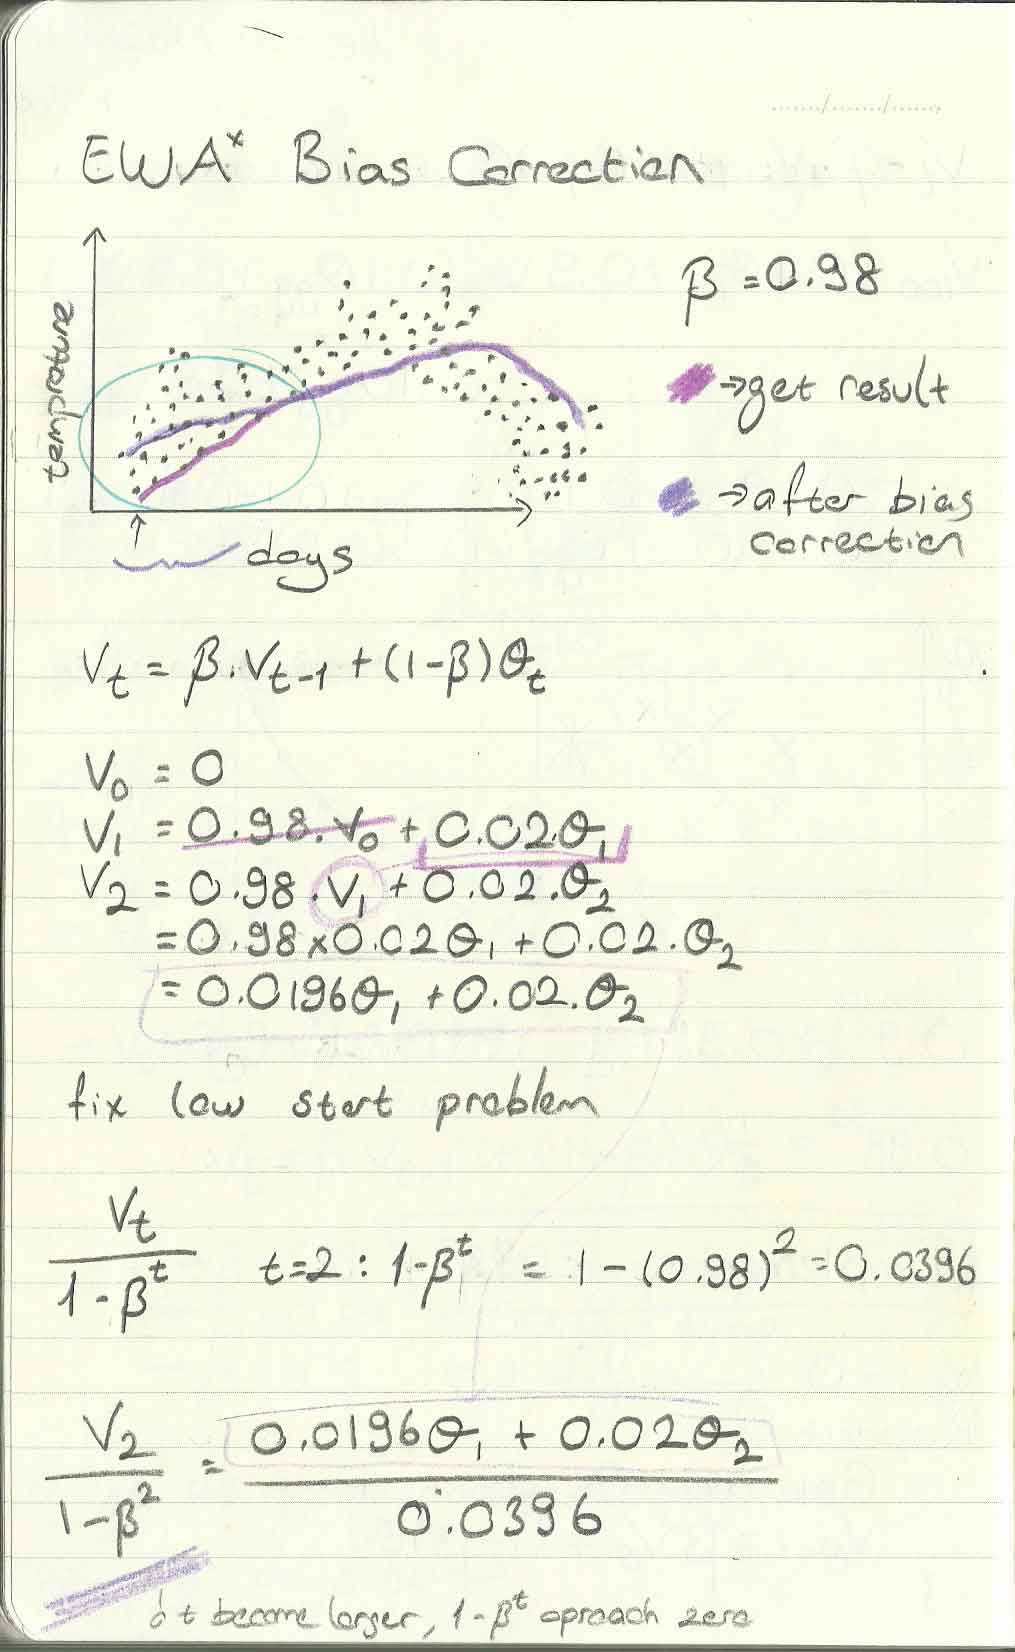 EWA* Bias Correction
temperature
days
β = 0.98
→ get result
→ after bias
correction
V_t = β.V_{t-1} + (1-β)θ_t
V_0 = 0
V_1 = 0.98.V_0 + 0.02θ_1
V_2 = 0.98.V_1 + 0.02.θ_2
= 0.98x0.02θ_1 + 0.02.θ_2
= 0.0196θ_1 + 0.02.θ_2
fix low start problem
V_t / 1-β^t    t=2 : 1-β^t = 1-(0.98)^2 = 0.0396
V_2 / 1-β^2 = 0.0196θ_1 + 0.02θ_2 / 0.0396
t become larger, 1-β^t aproach zero